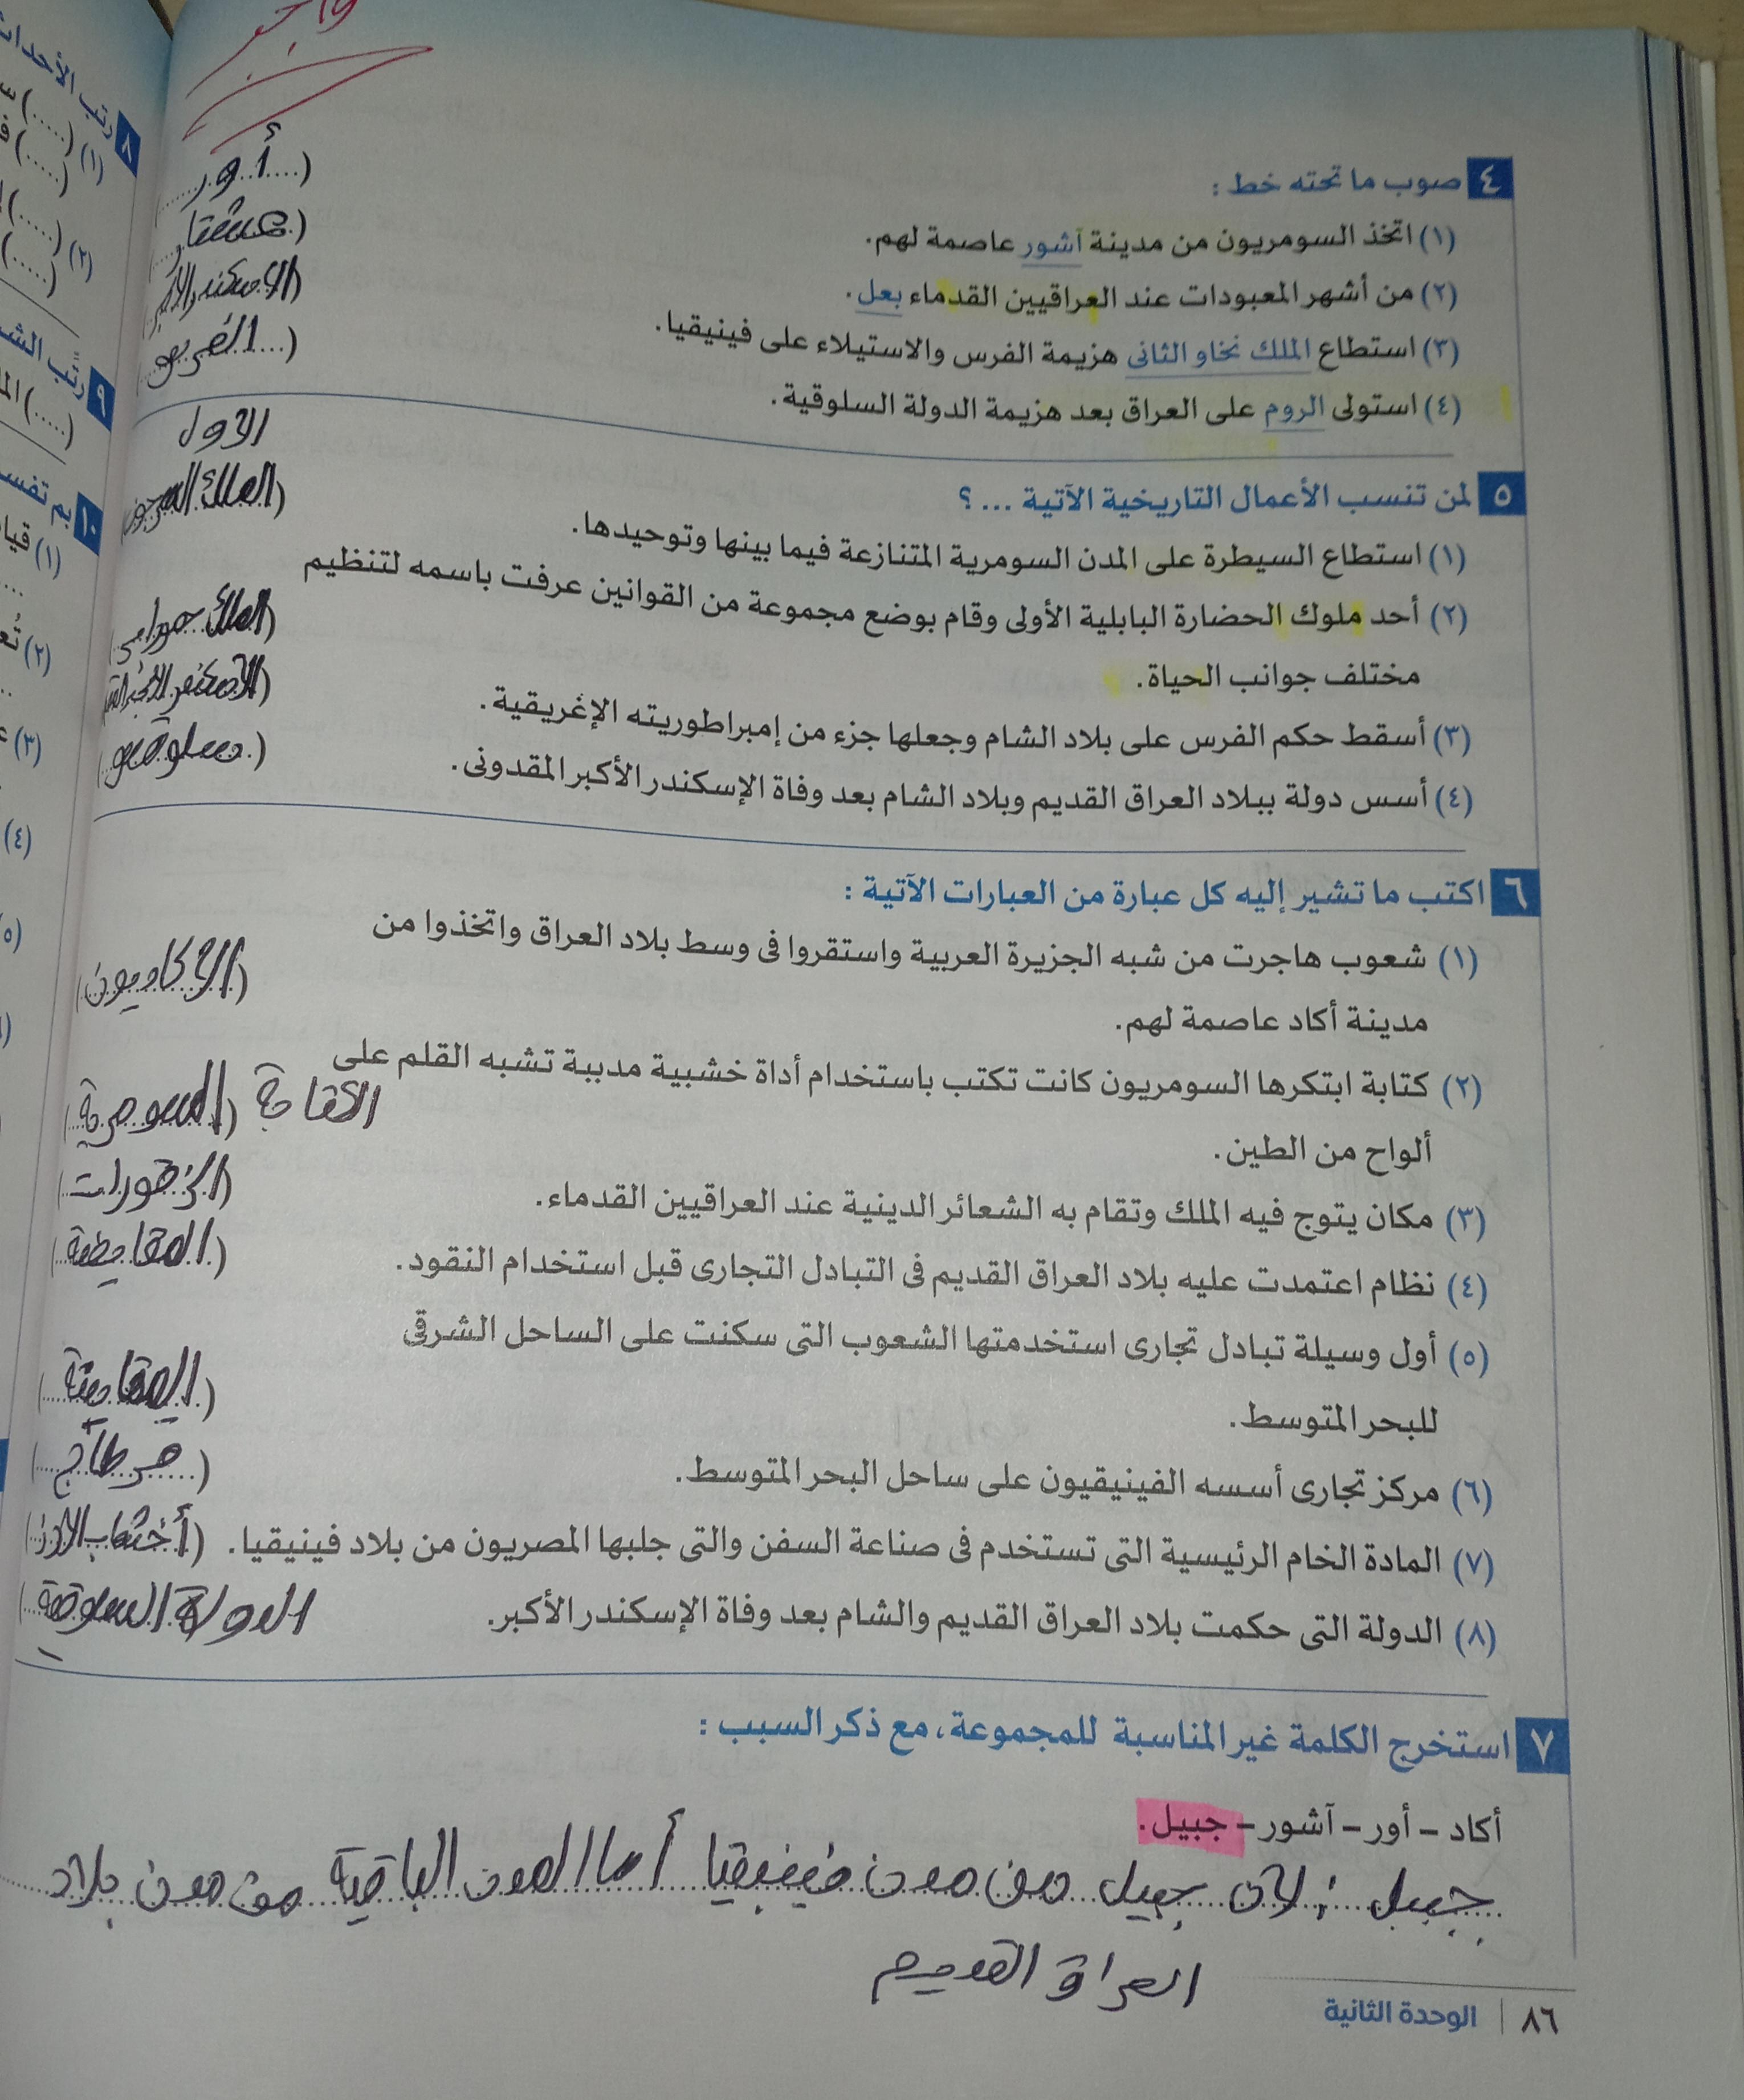 واجب
٤ صوب ما تحته خط :
(١) اتخذ السومريون من مدينة آشور عاصمة لهم. (أور)
(٢) من أشهر المعبودات عند العراقيين القدماء بعل. (عشتار)
(٣) استطاع الملك نخاو الثانى هزيمة الفرس والاستيلاء على فينيقيا. (الإسكندر الأكبر)
(٤) استولى الروم على العراق بعد هزيمة الدولة السلوقية. (الفرس)
٥ لمن تنسب الأعمال التاريخية الآتية ... ؟
الأول
(١) استطاع السيطرة على المدن السومرية المتنازعة فيما بينها وتوحيدها. (الملك سرجون)
(٢) أحد ملوك الحضارة البابلية الأولى وقام بوضع مجموعة من القوانين عرفت باسمه لتنظيم
مختلف جوانب الحياة. (الملك حمورابى)
(٣) أسقط حكم الفرس على بلاد الشام وجعلها جزء من إمبراطوريته الإغريقية. (الاسكندر الأكبر)
(٤) أسس دولة ببلاد العراق القديم وبلاد الشام بعد وفاة الإسكندر الأكبر المقدونى. (سلوقس)
٦ اكتب ما تشير إليه كل عبارة من العبارات الآتية :
(١) شعوب هاجرت من شبه الجزيرة العربية واستقروا فى وسط بلاد العراق واتخذوا من
مدينة أكاد عاصمة لهم. (الأكاديون)
(٢) كتابة ابتكرها السومريون كانت تكتب باستخدام أداة خشبية مدببة تشبه القلم على
ألواح من الطين. السومرية)
(٣) مكان يتوج فيه الملك وتقام به الشعائر الدينية عند العراقيين القدماء. (الزقورات)
(٤) نظام اعتمدت عليه بلاد العراق القديم فى التبادل التجارى قبل استخدام النقود. (المقايضة)
(٥) أول وسيلة تبادل تجارى استخدمتها الشعوب التى سكنت على الساحل الشرقى
للبحر المتوسط. (المقايضة)
(٦) مركز تجارى أسسه الفينيقيون على ساحل البحر المتوسط. (قرطاج)
(٧) المادة الخام الرئيسية التى تستخدم فى صناعة السفن والتى جلبها المصريون من بلاد فينيقيا. (أخشاب الأرز)
(٨) الدولة التى حكمت بلاد العراق القديم والشام بعد وفاة الإسكندر الأكبر. الدولة السلوقية)
٧ استخرج الكلمة غير المناسبة للمجموعة، مع ذكر السبب :
أكاد – أور – آشور – جبيل.
جبيل : لأن جبيل من مدن فينيقيا أما المدن الباقية من مدن بلاد
العراق القديم
٨٦ | الوحدة الثانية
٨ رتب الأحداث
(١) (.....)
(.....)
(٢) (.....)
(.....)
٩ رتِّب
(.....)
١٠ بم تفسر
(١)
(٢)
(٣)
(٤)